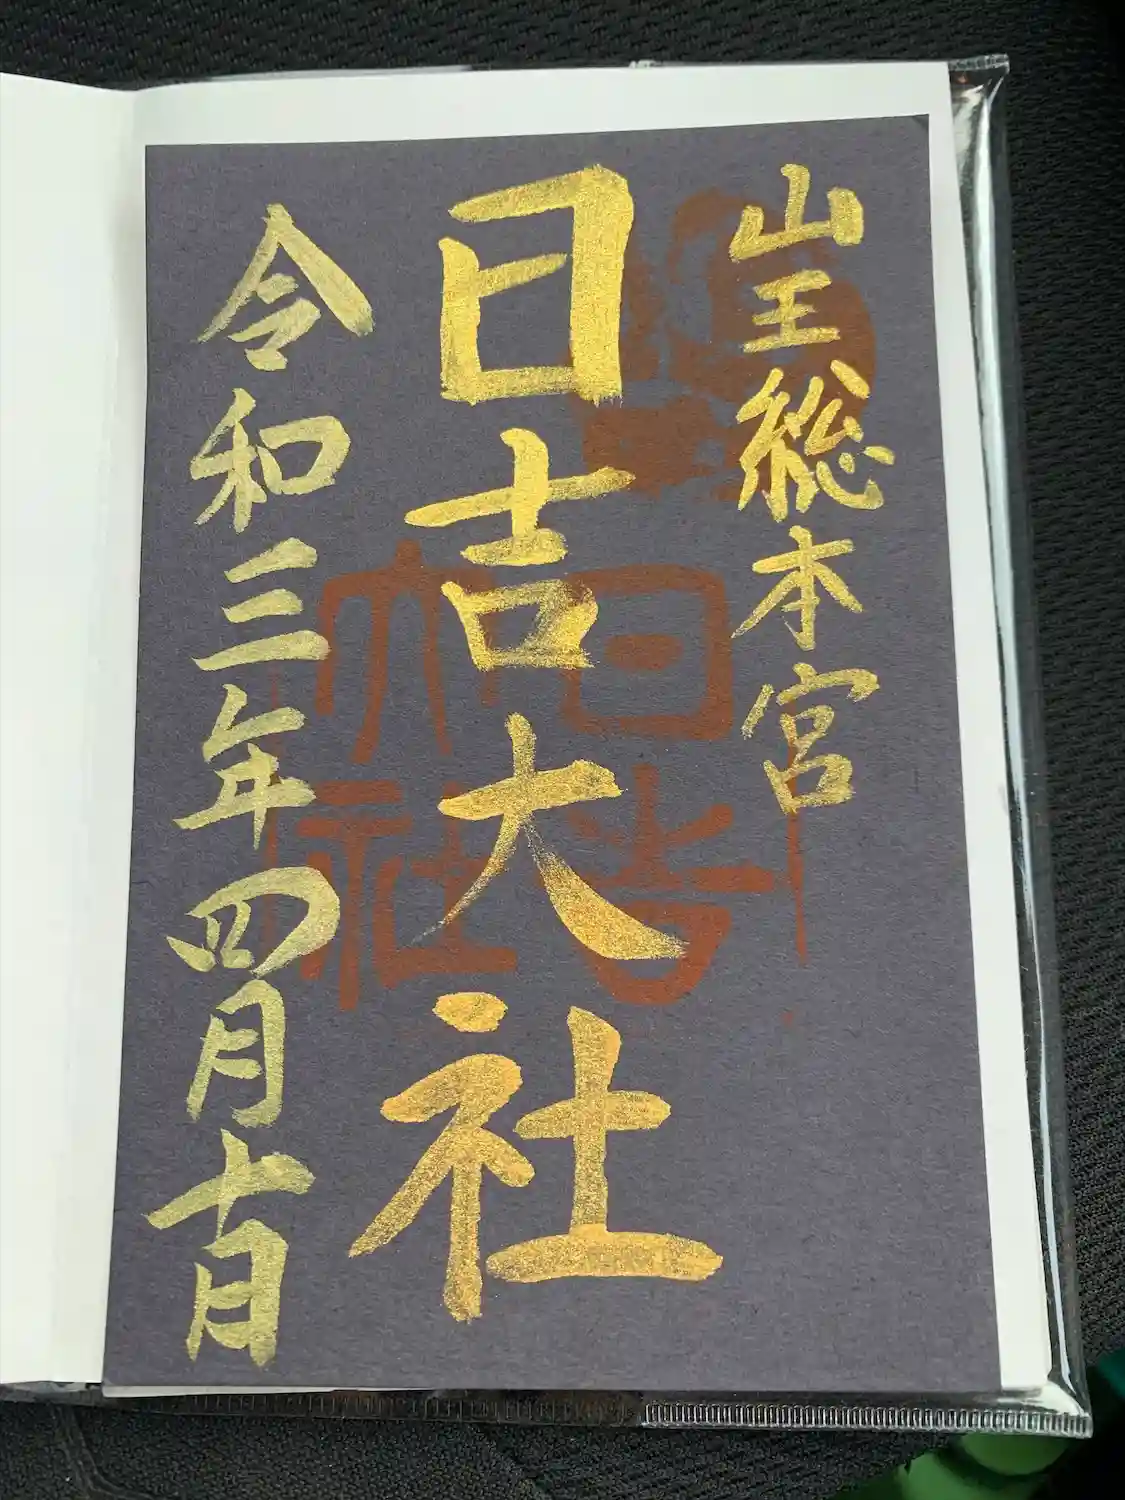 山王総本宮
日吉大社
令和三年四月十日
日吉大社